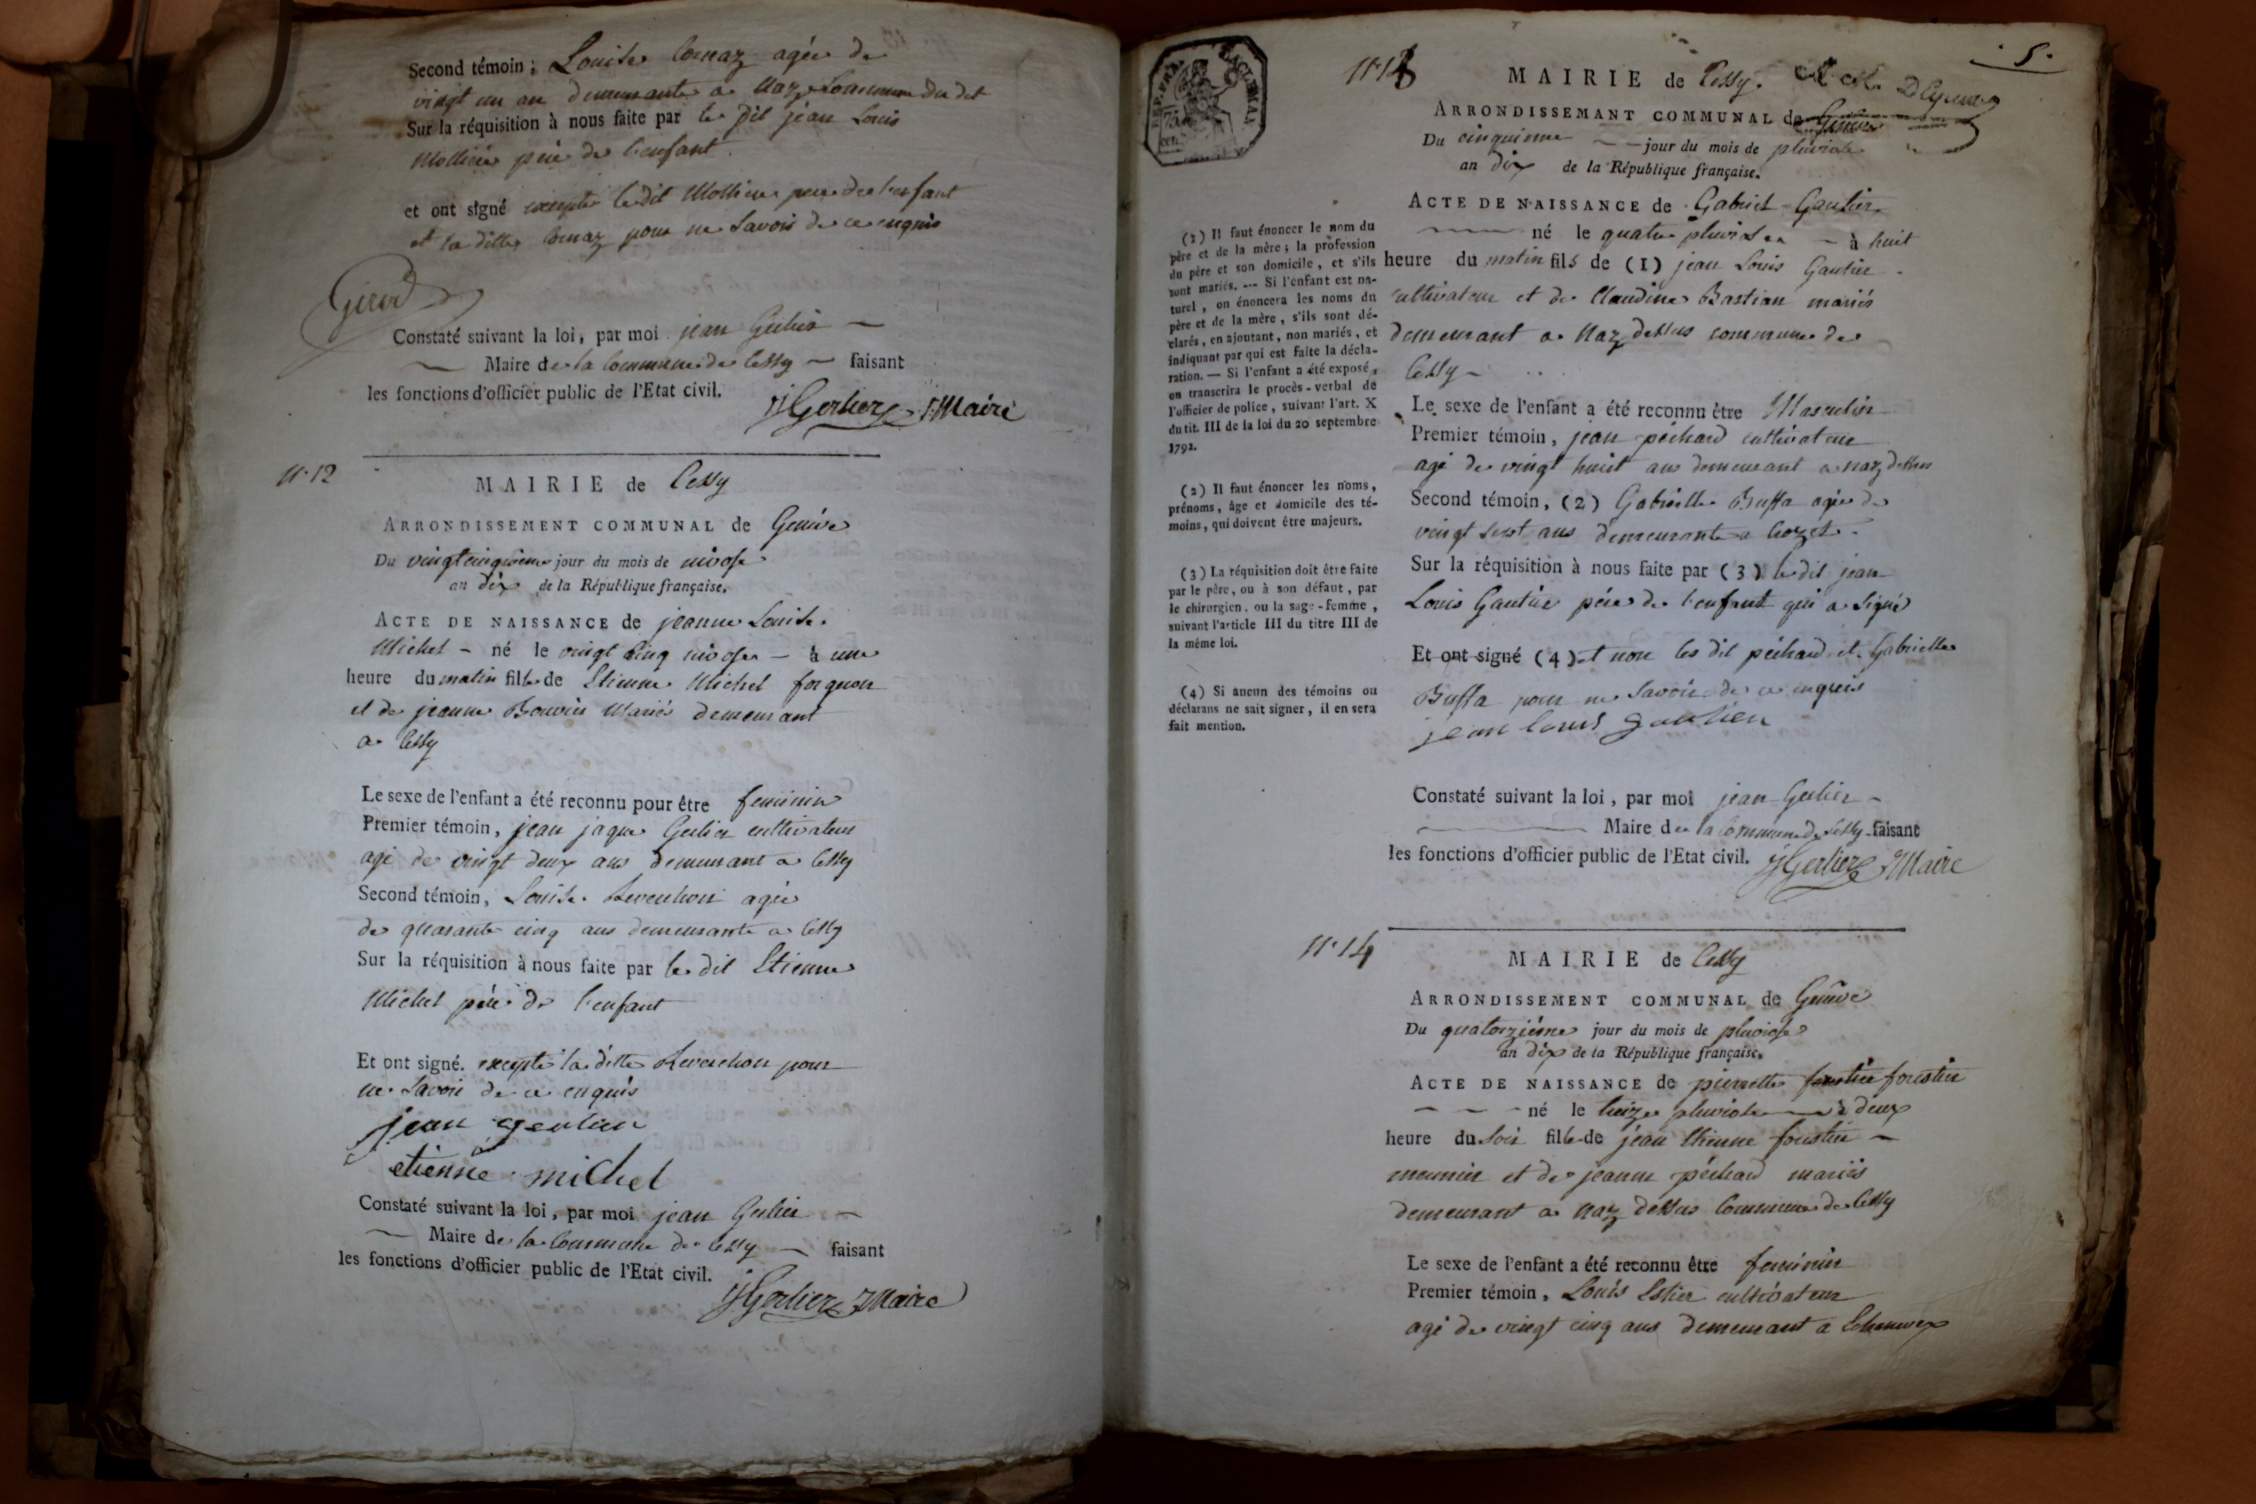 Second témoin ; Louise Cornaz agée de
vingt un an demeurante a Naz Commune du dit
Sur la réquisition à nous faite par le dit jean Louis
Mollier père de l'enfant
et ont signé excepté le dit Mollier pere de l'enfant
et la ditte Cornaz pour ne Savoir de ce enquis
Girod
Constaté suivant la loi, par moi jean Gerlier
Maire de la Commune de Cessy faisant
les fonctions d'officier public de l'Etat civil.
JJ Gerlier Maire
N° 12
MAIRIE de Cessy
ARRONDISSEMENT COMMUNAL de Genève
Du vingtcinquieme jour du mois de nivose
an dix de la République française.
ACTE DE NAISSANCE de jeanne Louise
Michel - né le vingt cinq nivose - à une
heure du matin fille de Etienne Michel forgeron
et de jeanne Bouvier Mariés demeurant
a Cessy
Le sexe de l'enfant a été reconnu pour être feminin
Premier témoin, jean jaque Gerlier cultivateur
agé de vingt deux ans demeurant a Cessy
Second témoin, Louise Reverchon agée
de quarante cinq ans demeurante a Cessy
Sur la réquisition à nous faite par le dit Etienne
Michel père de l'enfant
Et ont signé. excepté la ditte Reverchon pour
ne Savoir de ce enquis
jean gerlier
etienne michel
Constaté suivant la loi, par moi jean Gerlier
Maire de la Commune de Cessy faisant
les fonctions d'officier public de l'Etat civil.
JJ Gerlier Maire
5.
N° 13
MAIRIE de Cessy.
ARRONDISSEMANT COMMUNAL de Genève
Du cinquieme jour du mois de pluviose
an dix de la République française.
ACTE DE NAISSANCE de Gabriel Gautier
né le quatre pluviose - à huit
heure du matin fils de (1) jean Louis Gautier
cultivateur et de Claudine Bastian mariés
demeurant a Naz dessus commune de
Cessy -
Le sexe de l'enfant a été reconnu être Masculin
Premier témoin, jean péchard cultivateur
agé de vingt huit ans demeurant a naz dessus
Second témoin, (2) Gabrielle Buffa agée de
vingt sept ans demeurante a Crozet.
Sur la réquisition à nous faite par (3) le dit jean
Louis Gautier père de l'enfant qui a signé
Et ont signé (4) et non les dit péchard et Gabrielle
Buffa pour ne Savoir de ce enquis
jean louis gautier
Constaté suivant la loi, par moi jean Gerlier -
Maire de la Commune de Cessy faisant
les fonctions d'officier public de l'Etat civil.
JJ Gerlier Maire
(1) Il faut énoncer le nom du
père et de la mère ; la profession
du père et son domicile, et s'ils
sont mariés. --- Si l'enfant est na-
turel, on énoncera les noms du
père et de la mère, s'ils sont dé-
clarés, en ajoutant, non mariés, et
indiquant par qui est faite la décla-
ration. — Si l'enfant a été exposé,
on transcrira le procès-verbal de
l'officier de police, suivant l'art. X
du tit. III de la loi du 20 septembre
1792.
(2) Il faut énoncer les noms,
prénoms, âge et domicile des té-
moins, qui doivent être majeurs.
(3) La réquisition doit être faite
par le père, ou à son défaut, par
le chirurgien, ou la sage-femme,
suivant l'article III du titre III de
la même loi.
(4) Si aucun des témoins ou
déclarans ne sait signer, il en sera
fait mention.
N° 14
MAIRIE de Cessy
ARRONDISSEMENT COMMUNAL de Genève
Du quatorzième jour du mois de pluviose
an dix de la République française.
ACTE DE NAISSANCE de pierrette foustier
né le treize pluviose à deux
heure du soir fille de jean Etienne foustier -
meunier et de jeanne péchard mariés
demeurant a Naz dessus Commune de Cessy
Le sexe de l'enfant a été reconnu être feminin
Premier témoin, Louis Estier cultivateur
agé de vingt cinq ans demeurant a Echenevex